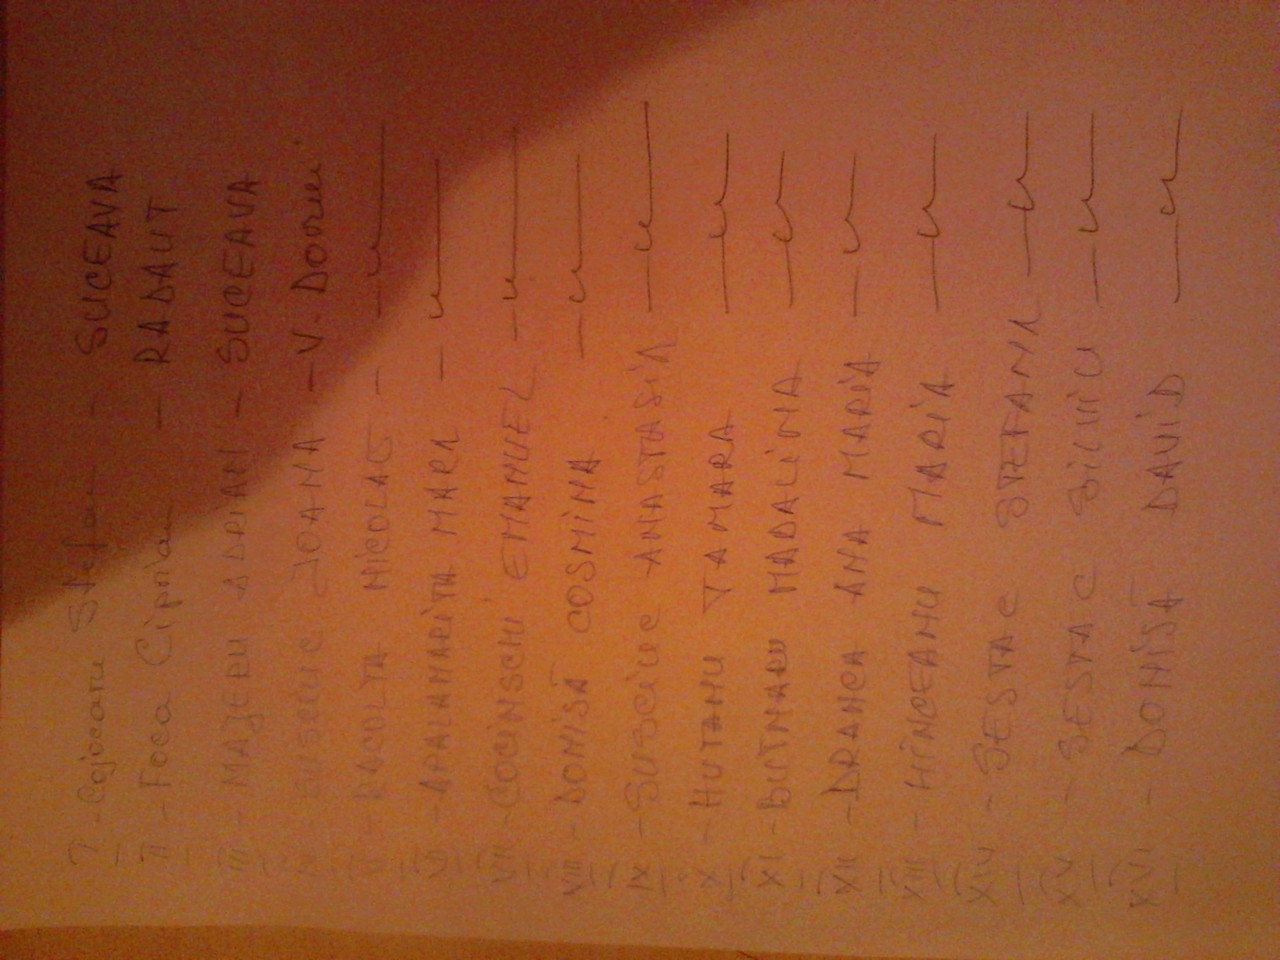 I - Cojocaru Stefan - SUCEAVA
II - Foca Ciprian - RADAUT
III - MAZERU ADRIAN - SUCEAVA
IV - IOANA - V. Dornei
V - RACOLTA NICOLAE - —〃—
VI - APALAMARITA MARA - —〃—
VII - COCINSCHI EMANUEL —〃—
VIII - DONISĂ COSMINA —〃—
IX - SUSCIUC ANASTASIA —〃—
X - HUTANU TAMARA —〃—
XI - BUTNARU MADALINA —〃—
XII - DRANCA ANA MARIA —〃—
XIII - HINCEANU MARIA —〃—
XIV - SESTAC STEFANA —〃—
XV - SESTAC SILVIU —〃—
XVI - DONISĂ DAVID —〃—